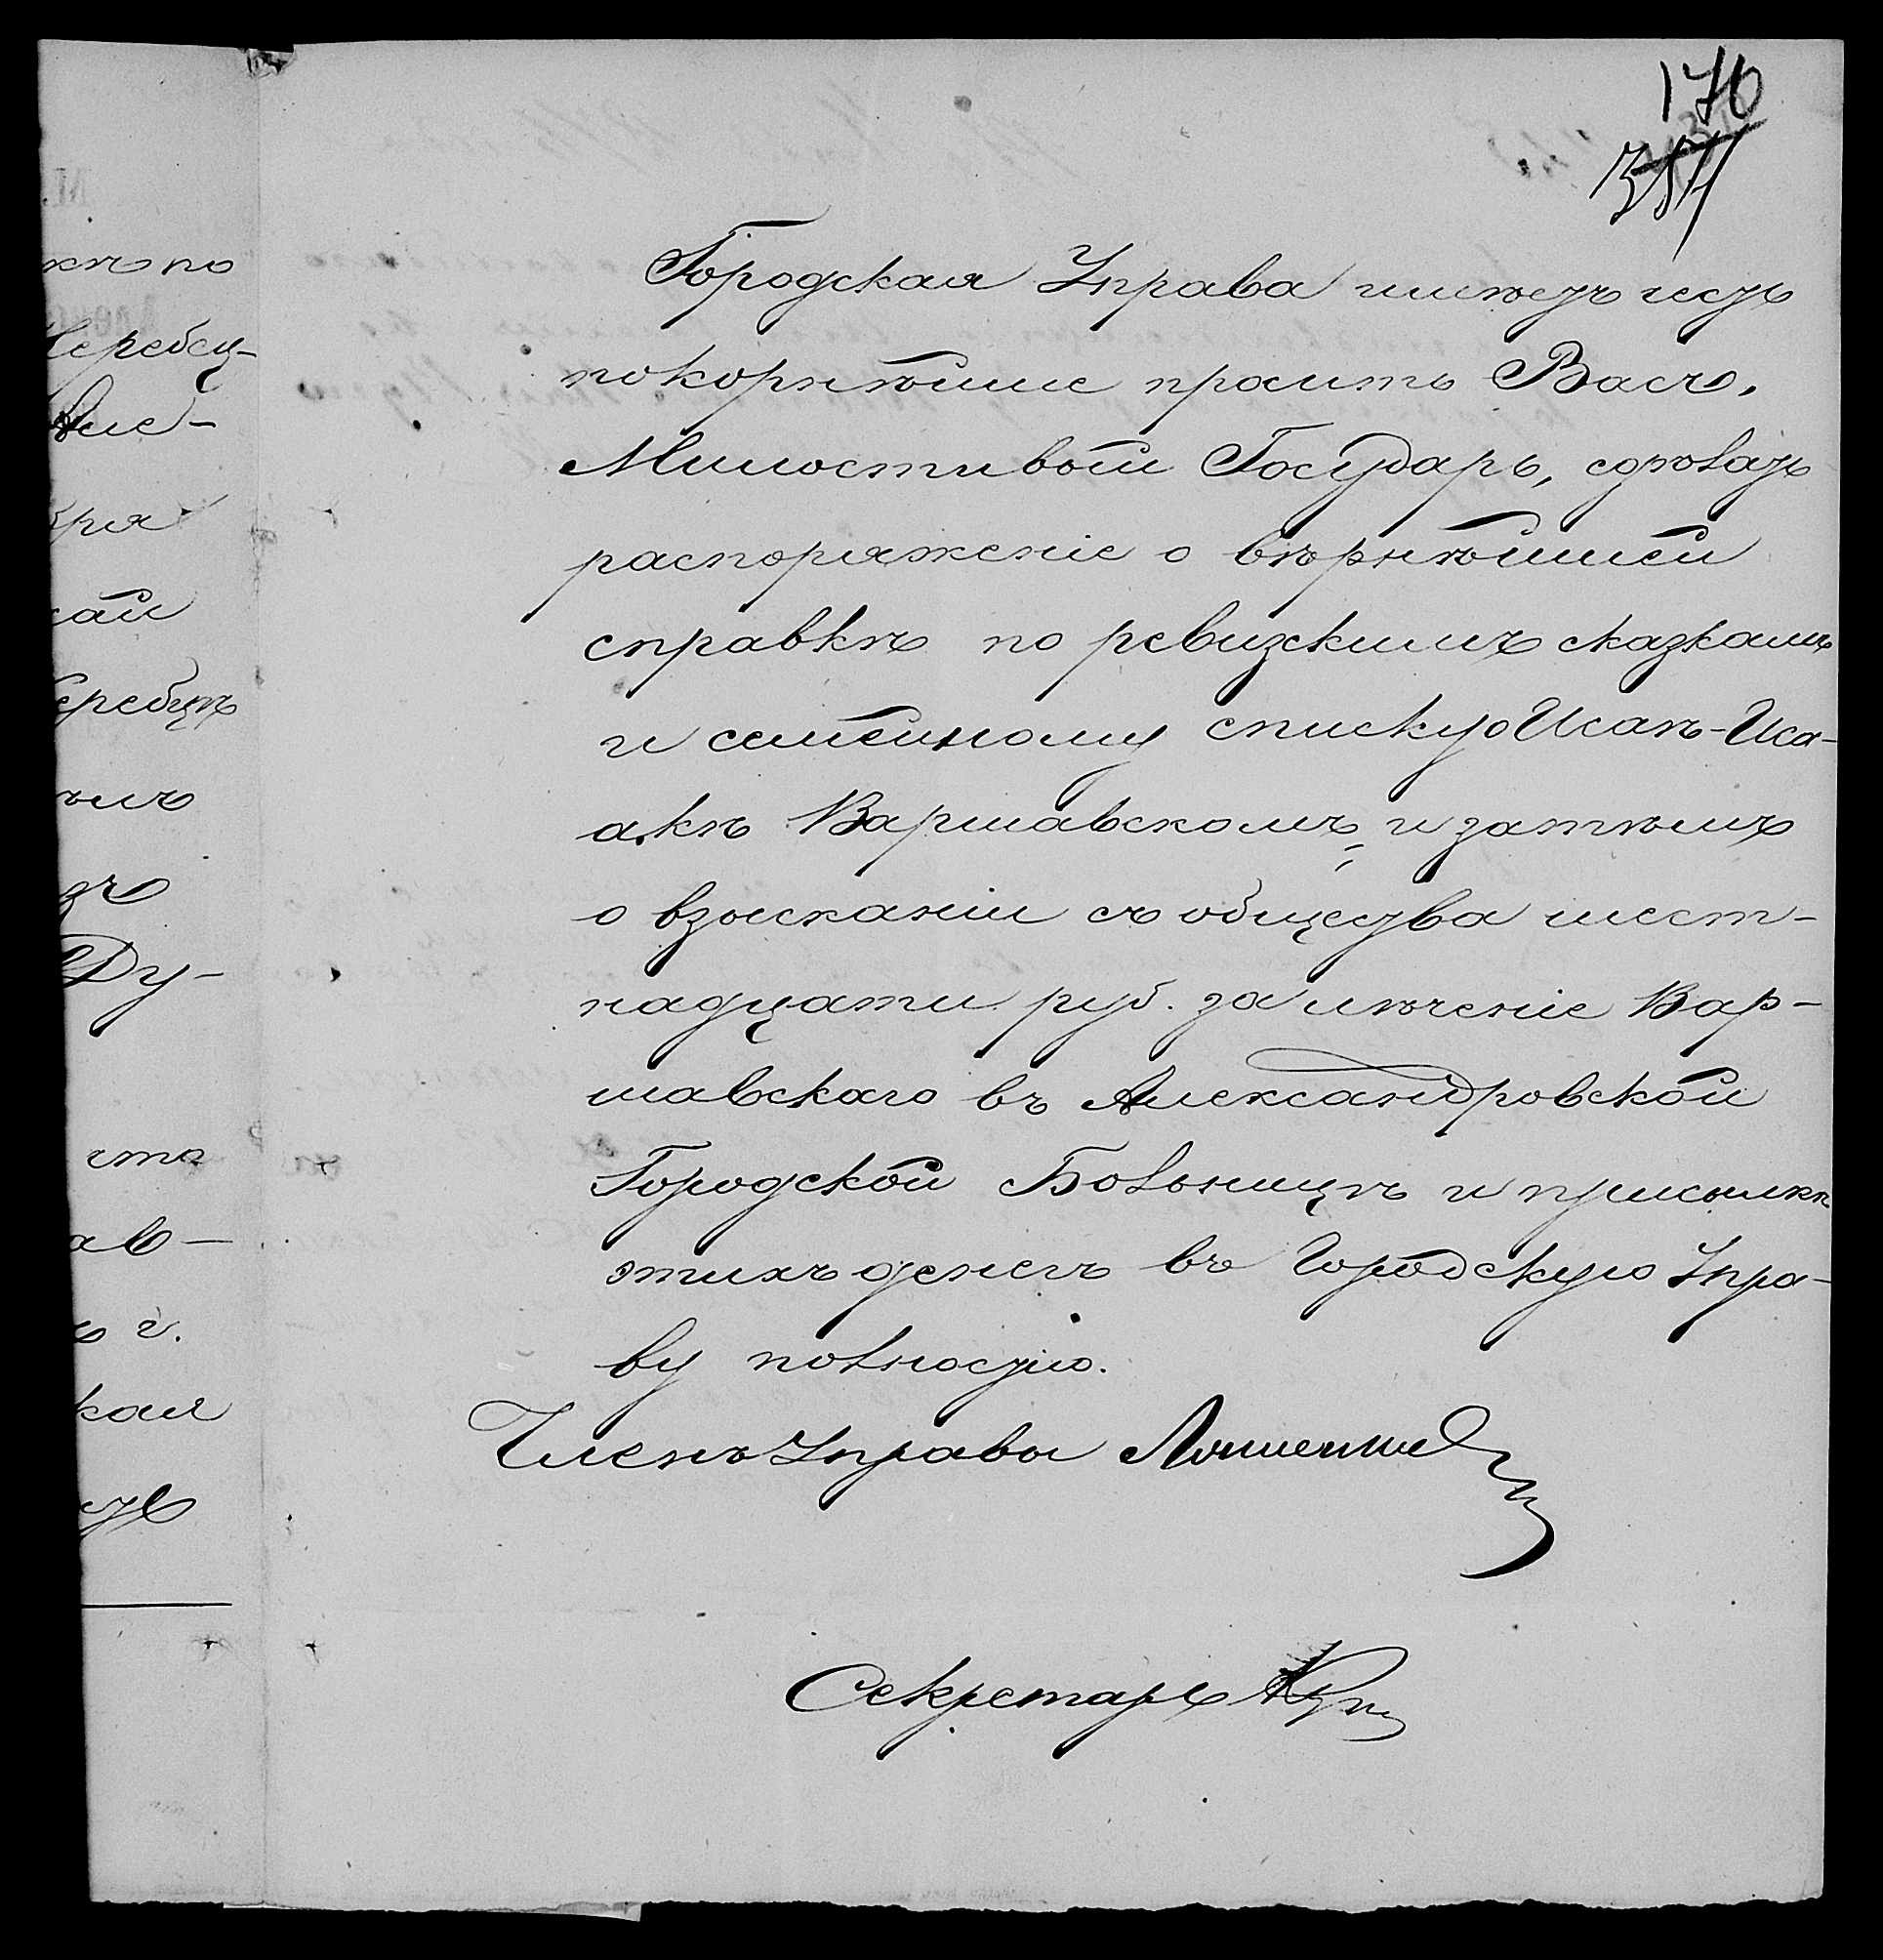 176
Городская Управа имѣетъ честь
покорнѣйше просить Васъ,
Милостивый Государь, сдѣлать
распоряженіе о вѣрнѣйшей
справкѣ по ревизскимъ сказкамъ
и семейному списку о Исаѣ-Иса-
акѣ Варшавскомъ, и затѣмъ
о взысканіи съ общества шест-
надцати руб. за лѣченіе Вар-
шавскаго въ Александровской
Городской Больницѣ и присылкѣ
этихъ денегъ въ Городскую Упра-
ву полностію.
Членъ Управы
Секретарь
кѣ по
еребец-
ря
ай
еребцѣ
Ду-
ав-
г.
кая